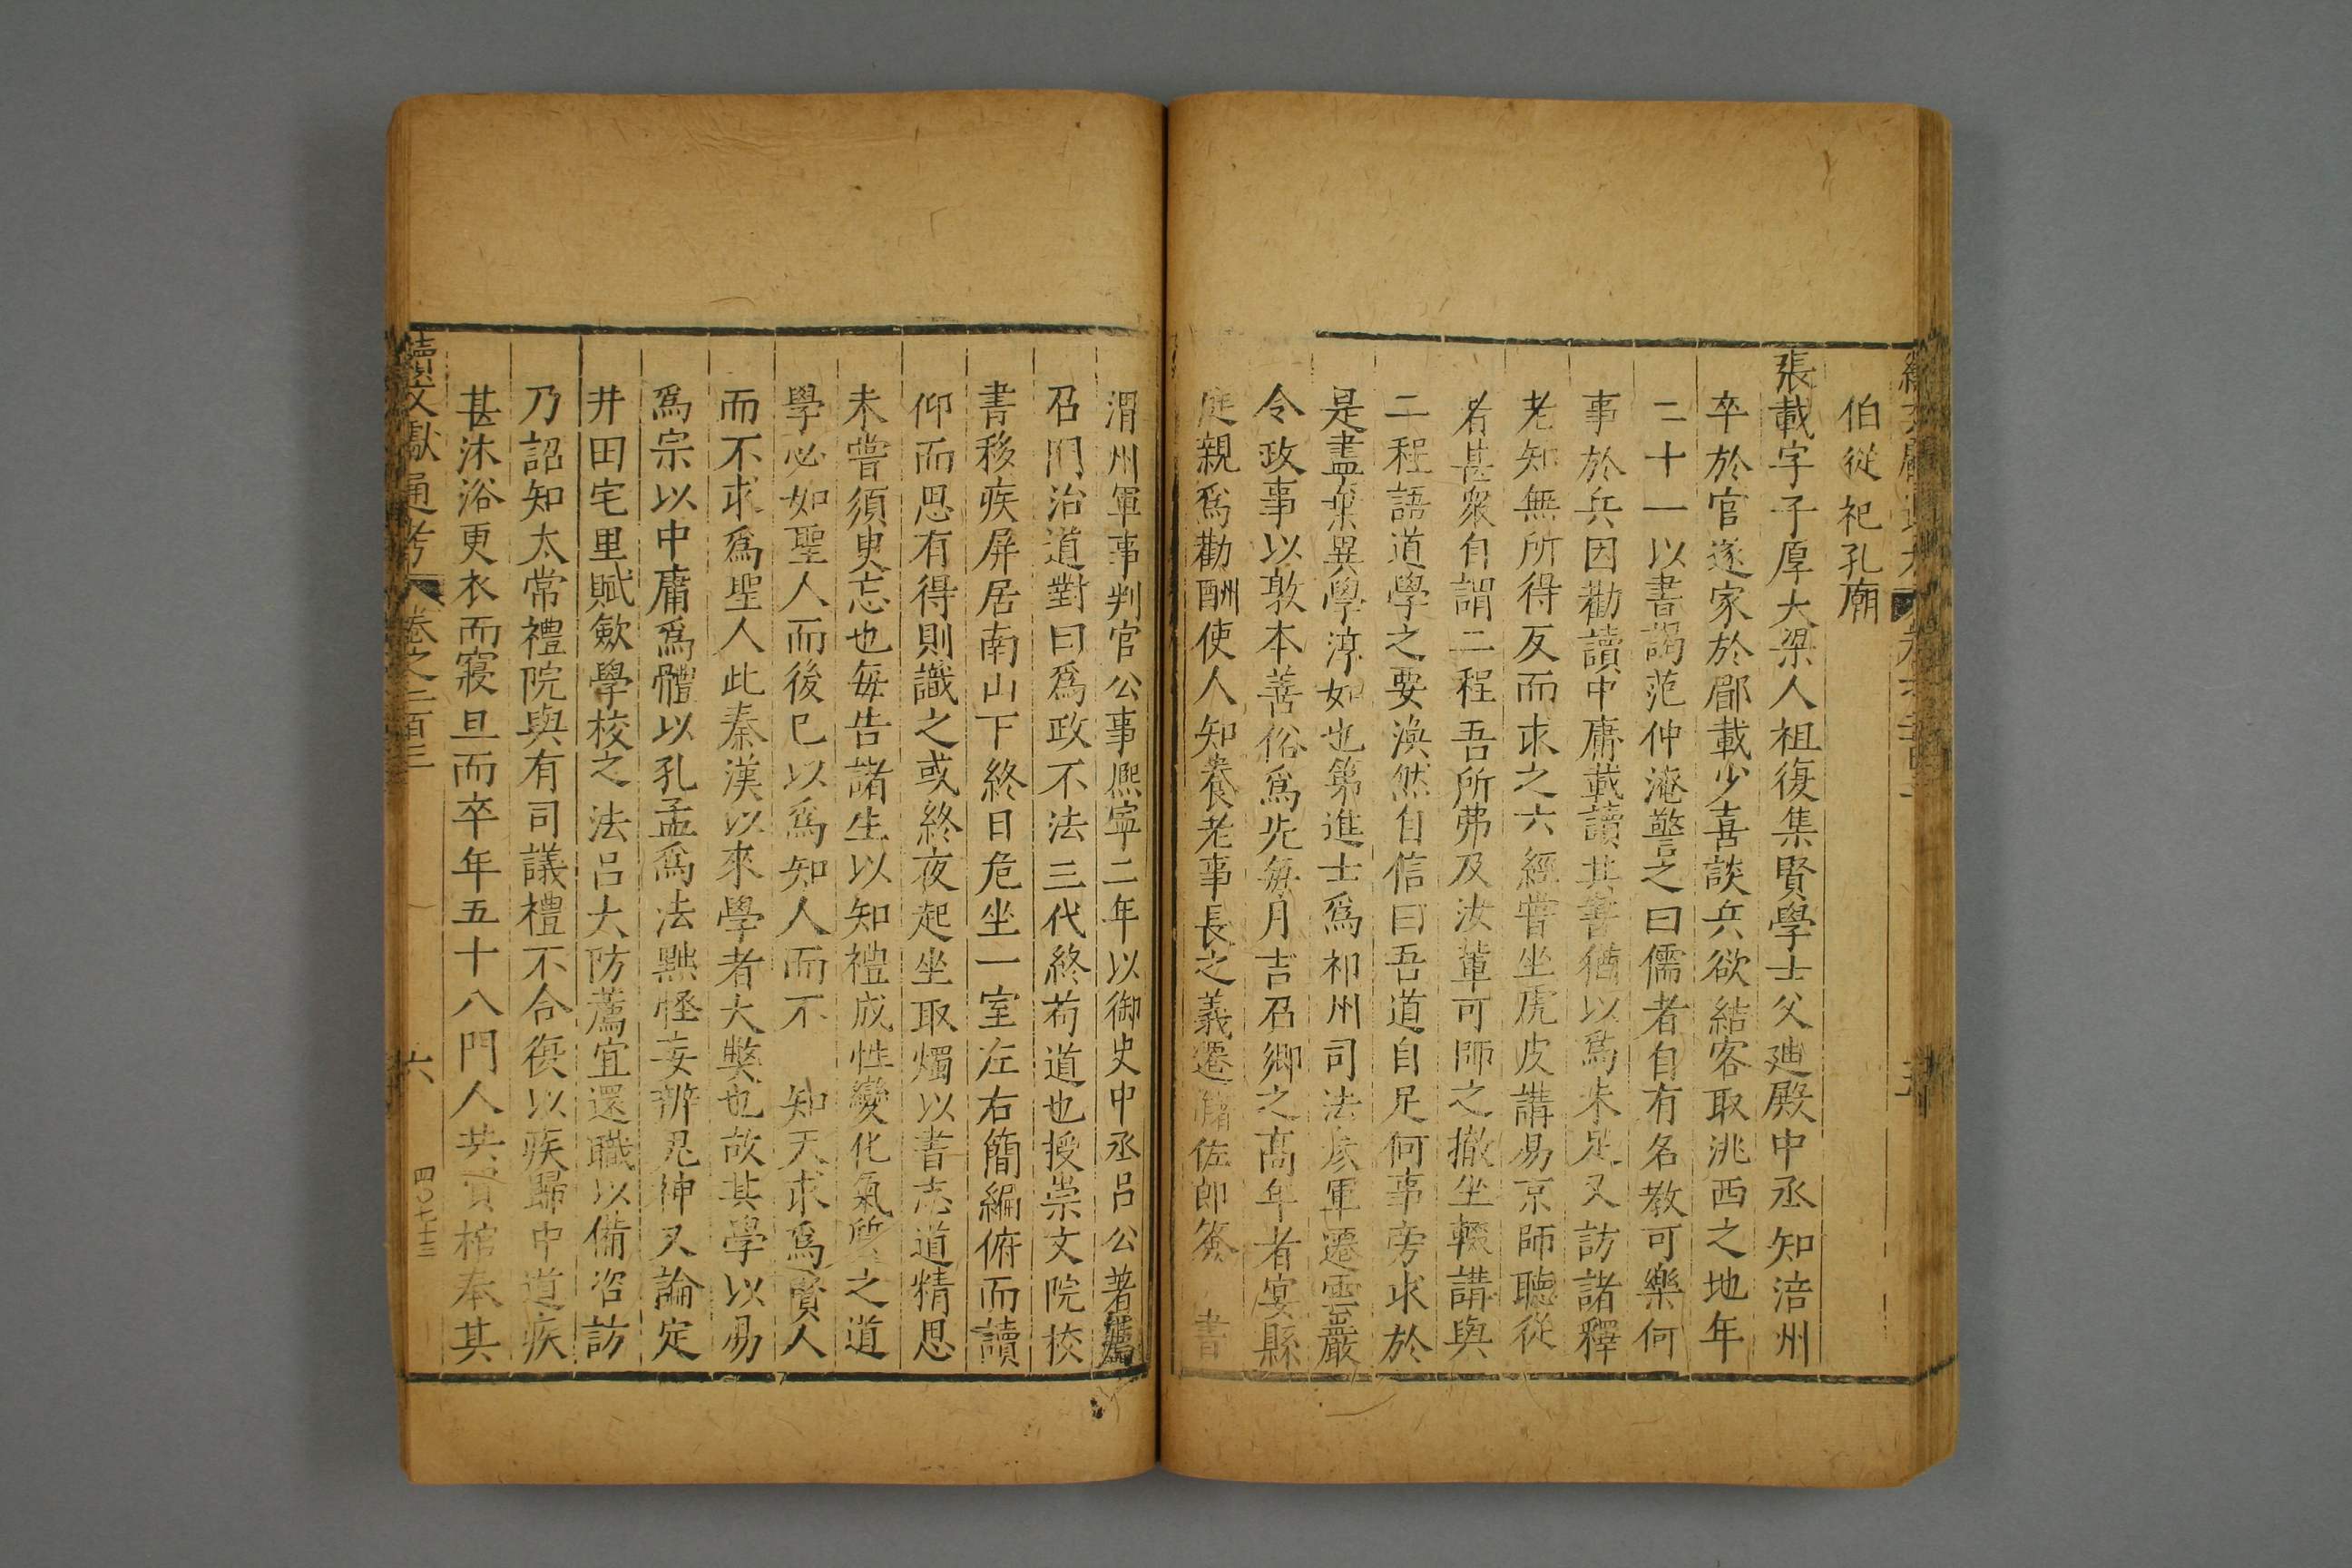 伯從祀孔廟
張載字子厚大梁人祖復集賢學士父廸殿中丞知涪州
卒於官遂家於郿載少喜談兵欲結客取洮西之地年
二十一以書謁范仲淹警之曰儒者自有名教可樂何
事於兵因勸讀中庸載讀其書猶以爲未足又訪諸釋
老知無所得反而求之六經嘗坐虎皮講易京師聽從
者甚衆自謂二程吾所弗及汝輩可師之撤坐輟講與
二程語道學之要渙然自信曰吾道自足何事旁求於
是盡棄異學淳如也第進士爲祁州司法叅軍遷雲巖
令政事以敦本善俗爲先每月吉召鄉之高年者宴縣
庭親爲勸酬使人知養老事長之義遷佐郎簽書
渭州軍事判官公事熈寧二年以御史中丞呂公著薦
召問治道對曰爲政不法三代終苟道也授崇文院校
書移疾屏居南山下終日危坐一室左右簡編俯而讀
仰而思有得則識之或終夜起坐取燭以書志道精思
未嘗須臾忘也每告諸生以知禮成性變化氣質之道
學必如聖人而後已以爲知人而不知天求爲賢人
而不求爲聖人此秦漢以來學者大獘也故其學以易
爲宗以中庸爲體以孔孟爲法黜怪妄辨鬼神又論定
井田宅里賦歛學校之法呂大防薦宜還職以備咨訪
乃詔知太常禮院與有司議禮不合復以疾歸中道疾
甚沐浴更衣而寢旦而卒年五十八門人共買棺奉其
續文獻通考 卷之二百三 六 四〇七十三